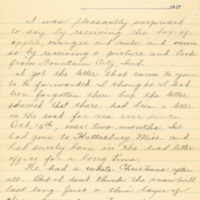 1917
I was pleasantly surprised
to day by receiving the box of
apples, oranges and nuts and more
so by receiving a picture and book
from Fountain City, Ind.
I got the letter that came to you
to be forwarded. I thought I had
been forgotten then but the letter
showed that there had been a letter
on the road for me ever since
Oct. 19th over two months. It
had gone to Hattiesburg, Miss. and
had surely been in the dead letter
office for a long time.
We had a white Christmas after
all. But I don't think the snow will
last long. Just a thin layer of